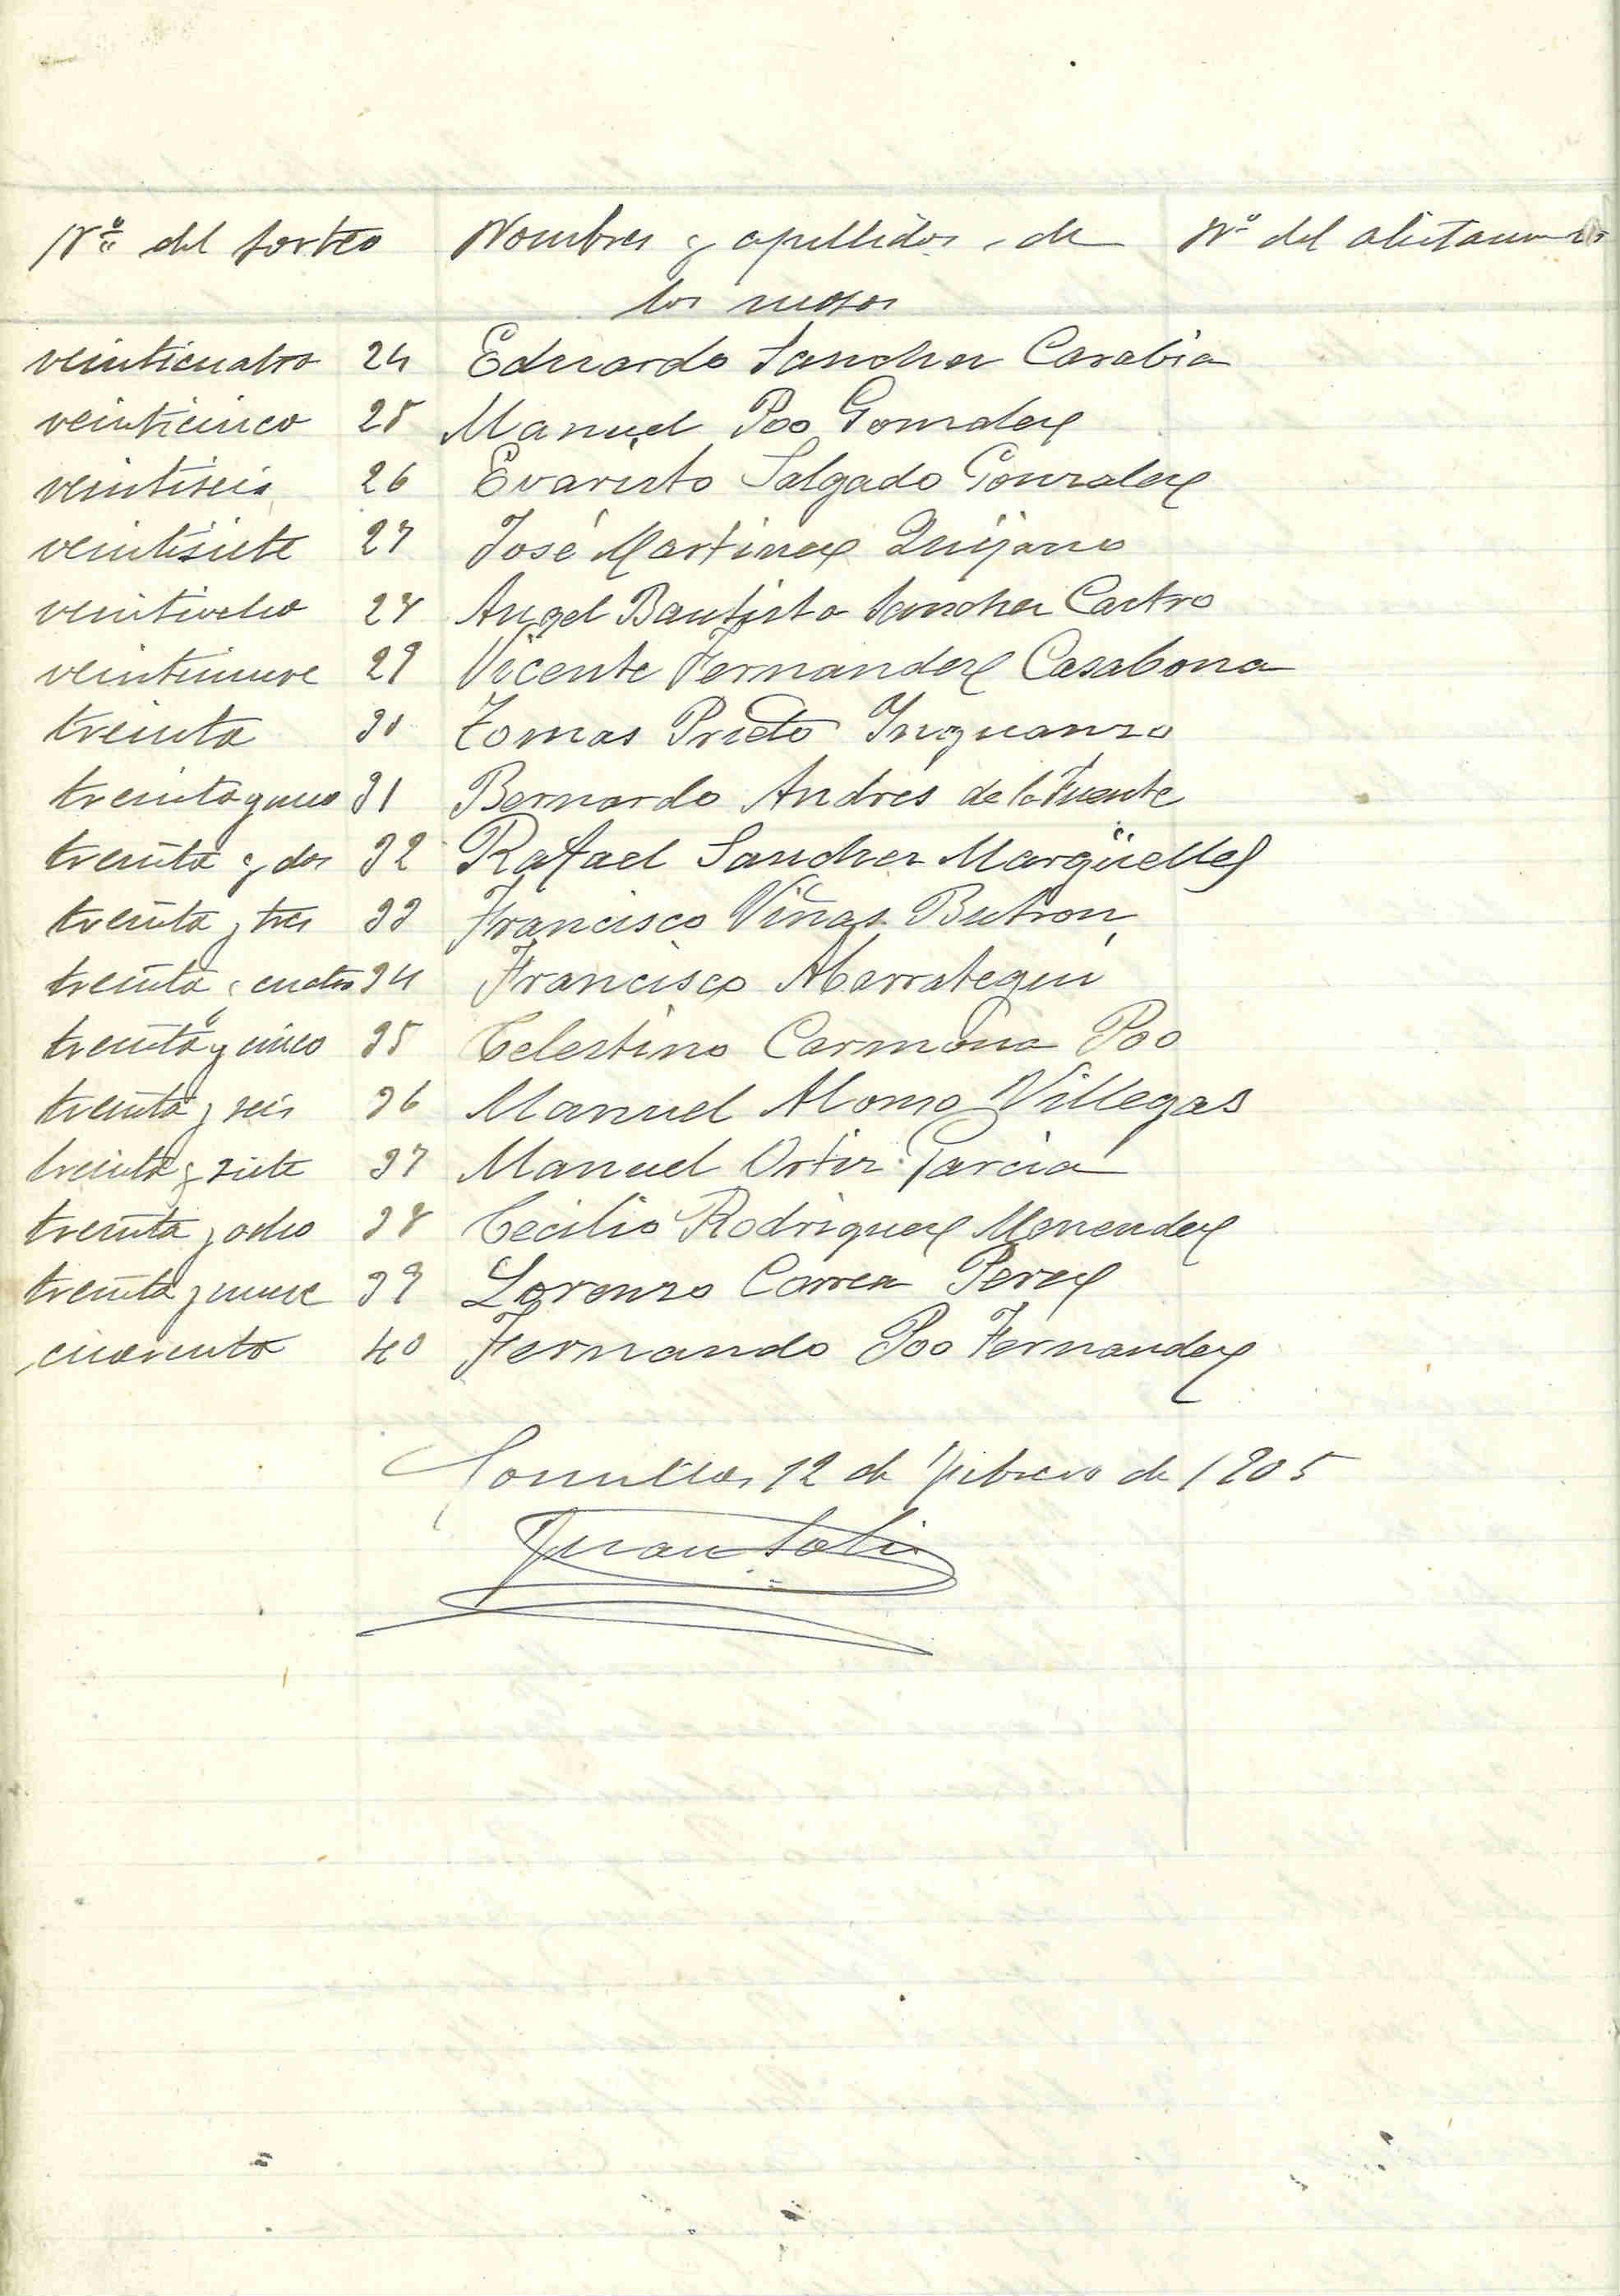 Nº del sorteo Nombres y apellidos de Nº del alistamto
los mozos
veinticuatro 24 Eduardo Sanchez Carabia
veinticinco 25 Manuel Poo Gonzalez
veintiseis 26 Evaristo Salgado Gonzalez
veintisiete 27 José Martinez Quijano
veintiocho 28 Angel Bautista Sanchez Castro
veintinueve 29 Vicente Fernandez Casabona
treinta 30 Tomas Prieto Inguanzo
treinta y uno 31 Bernardo Andrés de la Fuente
treinta y dos 32 Rafael Sanchez Margüelles
treinta y tres 33 Francisco Viñas Butron
treinta y cuatro 34 Francisco Abarrategui
treinta y cinco 35 Celestino Carmona Poo
treinta y seis 36 Manuel Alonso Villegas
treinta y siete 37 Manuel Ortiz Garcia
treinta y ocho 38 Cecilio Rodriguez Menendez
treinta y nueve 39 Lorenzo Correa Perez
cuarenta 40 Fernando Poo Fernandez
Comillas 12 de Febrero de 1905
Juan